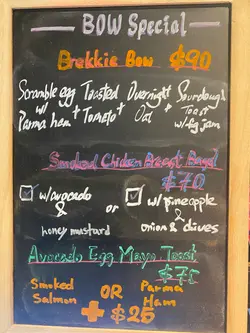 BOW Special
Brekkie Bow $90
Scramble egg Toasted Overnight Sourdough
w/ + + + Toast
Parma ham Tomato Oat w/ fig jam
Smoked Chicken Breast Bagel
$70
w/ avocado or w/ pineapple
& &
honey mustard onion & chives
Avocado Egg Mayo Toast
$75
Smoked OR Parma
Salmon Ham
+ $25